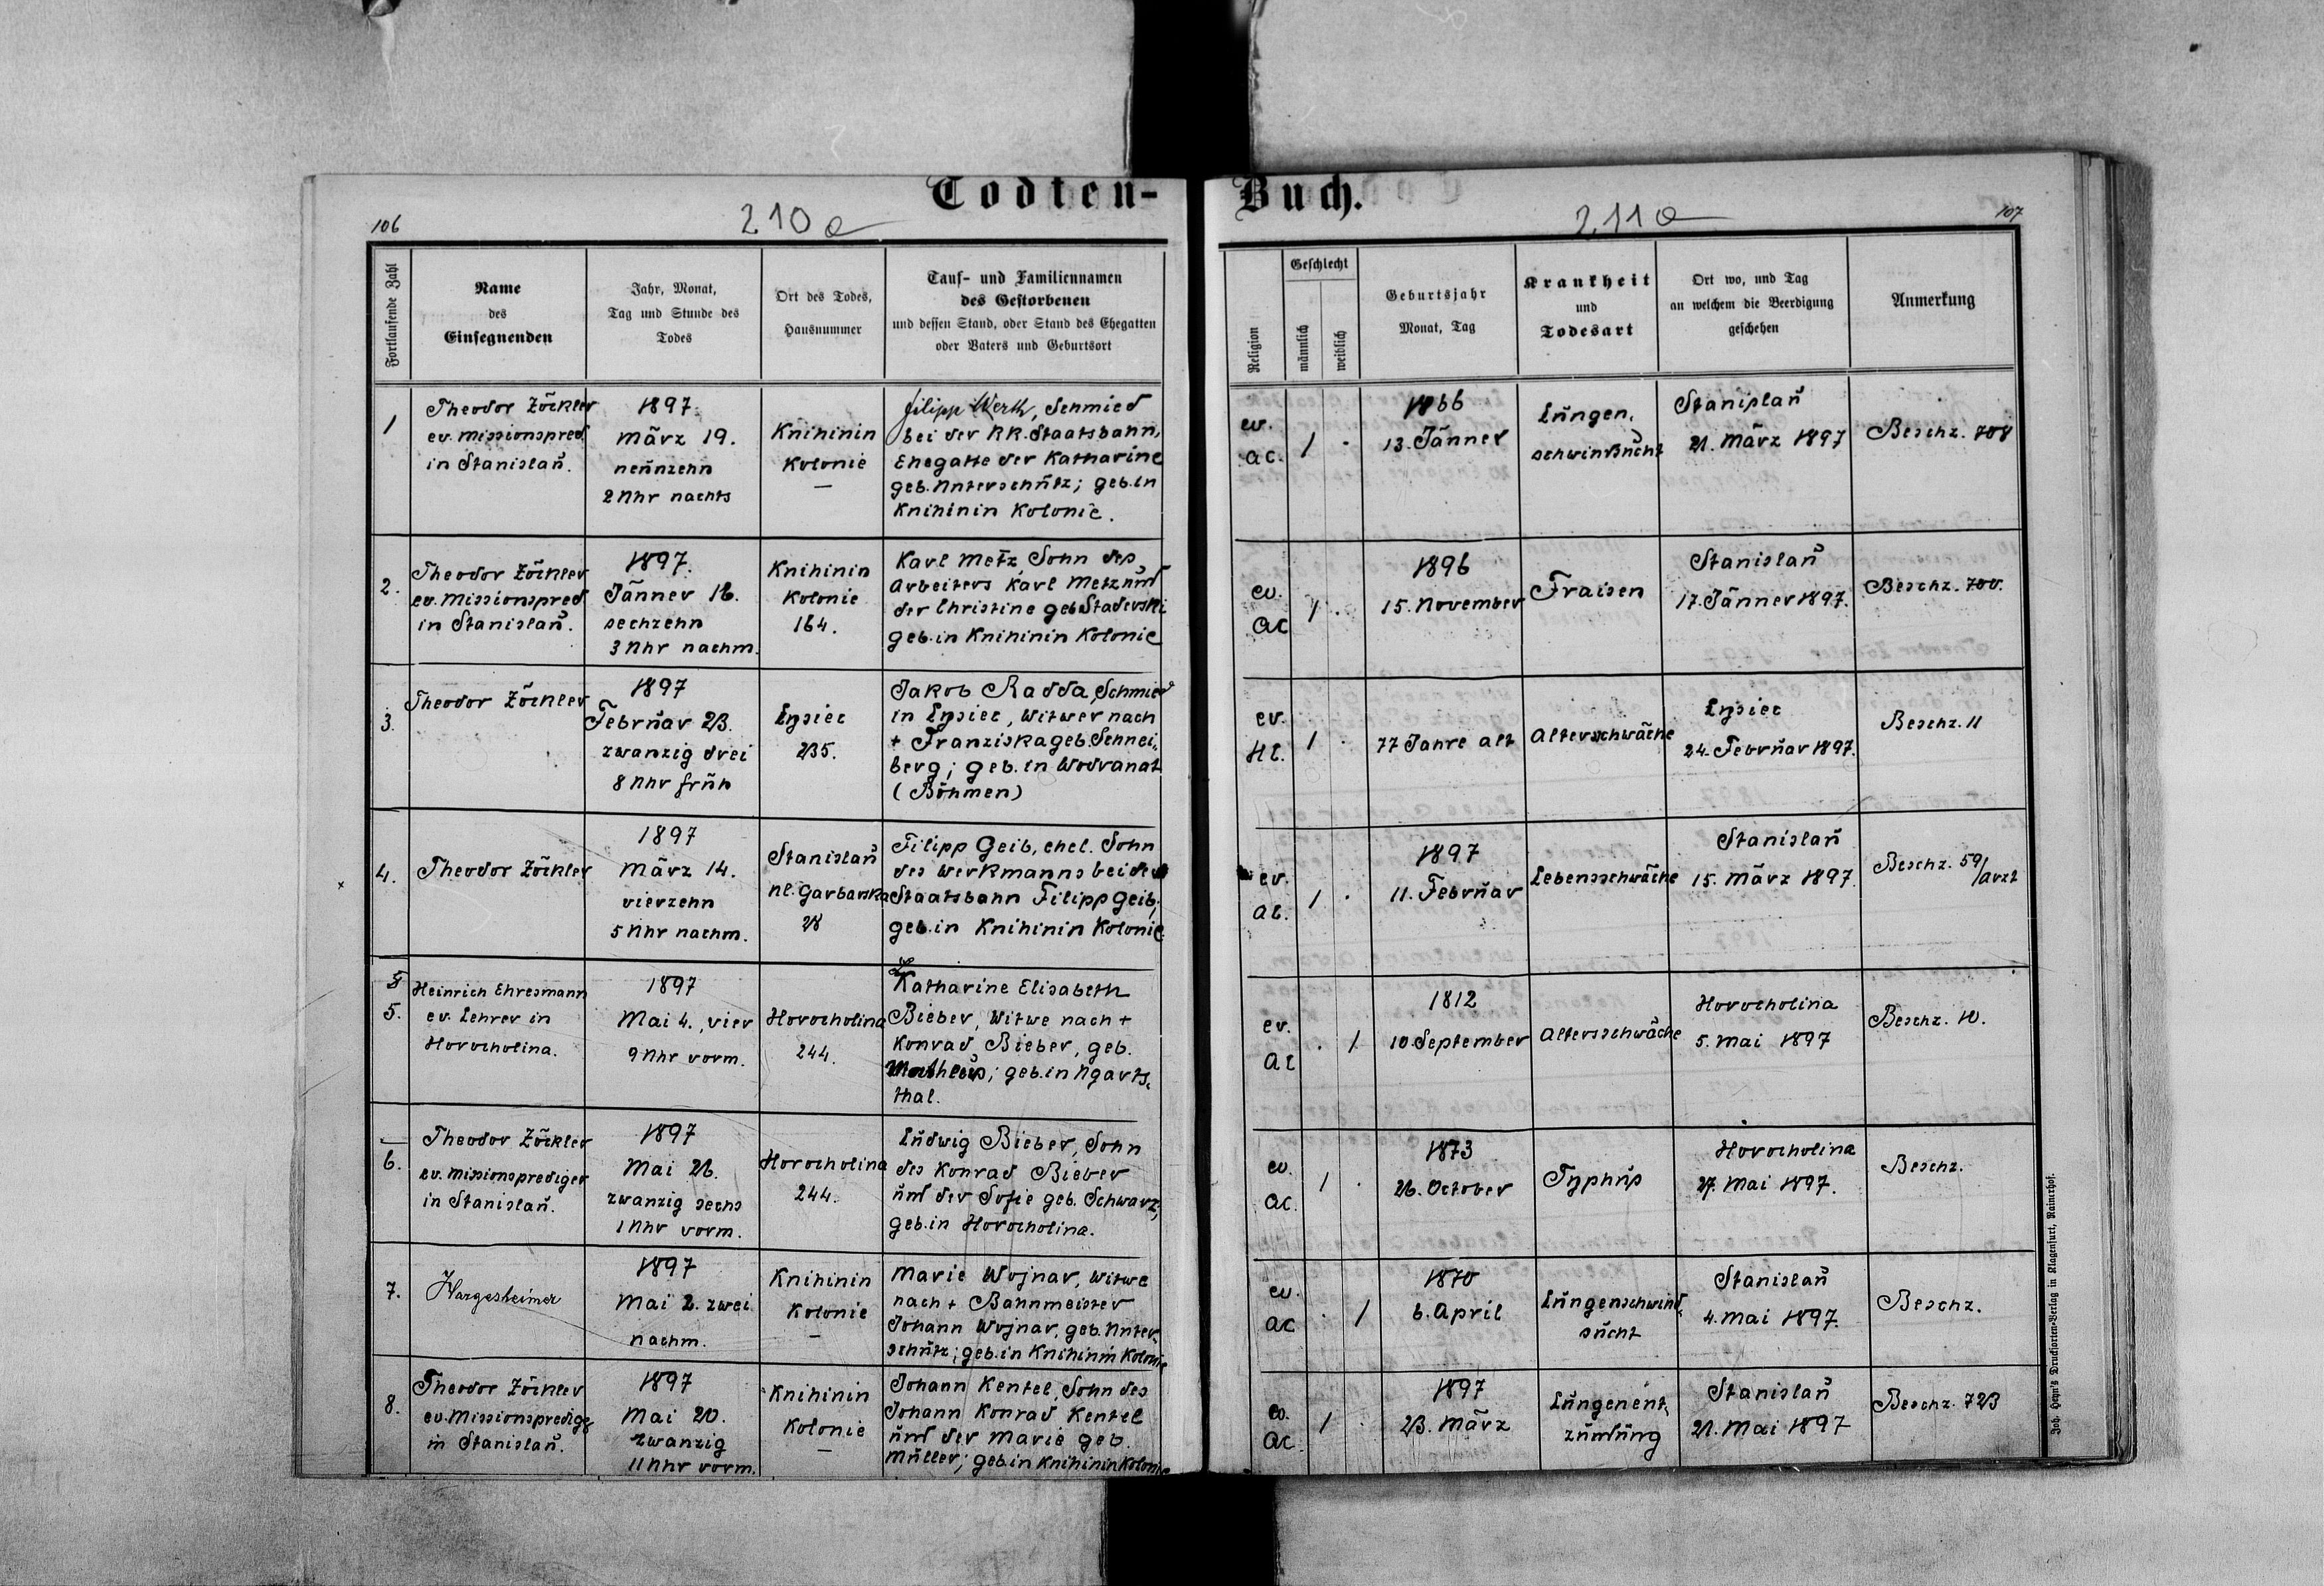 Todten-
Buch.
106
210a
211a
107
Fortlaufende Zahl
Name
des
Einsegnenden
Jahr, Monat,
Tag und Stunde des
Todes
Ort des Todes,
Hausnummer
Tauf- und Familiennamen
des Gestorbenen
und dessen Stand, oder Stand des Ehegatten
oder Vaters und Geburtsort
Religion
Geschlecht
männlich
weiblich
Geburtsjahr
Monat, Tag
Krankheit
und
Todesart
Ort wo, und Tag
an welchem die Beerdigung
geschehen
Anmerkung
1
Theodor Zöckler
ev. Missionspred.
in Stanislaŭ.
1897.
März 19.
neŭnzehn
2 Uhr nachts
Knihinin
Kolonie
—
Filipp Werth, Schmied
bei der KK. Staatsbahn,
Ehegatte der Katharine
geb. Unterschŭtz; geb. in
Knihinin Kolonie.
ev.
AC.
1
1866
13. Jänner
Lŭngen-
schwindsŭcht
Stanislaŭ
21. März 1897
Beschz. 708
2.
Theodor Zöckler
ev. Missionspred.
in Stanislaŭ.
1897.
Jänner 16.
sechzehn
3 Uhr nachm.
Knihinin
Kolonie
164.
Karl Metz, Sohn des
Arbeiters Karl Metz ŭnd
der Christine geb. Staderski
geb. in Knihinin Kolonie
ev.
AC
1
1896
15. November
Fraisen
Stanislaŭ
17. Jänner 1897.
Beschz. 700.
3.
Theodor Zöckler
1897
Febrŭar 23.
zwanzig drei
8 Uhr frŭh
Lysiec
235.
Jakob Radda, Schmied
in Lysiec, Witwer nach
+ Franziska geb. Schnei-
berg; geb. in Wodranat
(Böhmen)
ev.
HC.
1
77 Jahre alt
Altersschwäche
Lysiec
24. Febrŭar 1897.
Beschz. 11
4.
Theodor Zöckler
1897
März 14.
vierzehn
5 Uhr nachm.
Stanislaŭ
Ul. Garbarska
28
Filipp Geib, ehel. Sohn
des Werkmanns bei der
Staatsbahn Filipp Geib;
geb. in Knihinin Kolonie
ev.
AC.
1
1897
11. Febrŭar
Lebensschwäche
Stanislaŭ
15. März 1897.
Beschz. 59/Arzt
5.
Heinrich Ehresmann
ev. Lehrer in
Horocholina.
1897
Mai 4., vier
9 Uhr vorm.
Horocholina
244.
Katharine Elisabeth
Bieber, Witwe nach +
Konrad Bieber, geb.
Matheŭs; geb. in Ugarts-
thal.
ev.
AC
1
1812
10. September
Altersschwäche
Horocholina
5. Mai 1897
Beschz. 10.
6.
Theodor Zöckler
ev. Missionsprediger
in Stanislaŭ.
1897
Mai 26.
zwanzig sechs
1 Uhr vorm.
Horocholina
244.
Lŭdwig Bieber, Sohn
des Konrad Bieber
ŭnd der Sofie geb. Schwarz;
geb. in Horocholina.
ev.
AC.
1
1873
26. October
Typhŭs
Horocholina
27. Mai 1897.
Beschz.
7.
Hargesheimer
1897
Mai 2. zwei
nachm.
Knihinin
Kolonie
—
Marie Wojnar, Witwe
nach + Bahnmeister
Johann Wojnar, geb. Unter-
schŭtz; geb. in Knihinin Kolonie
ev.
AC
1
1870
6. April
Lŭngenschwind-
sŭcht
Stanislaŭ
4. Mai 1897.
Beschz.
8.
Theodor Zöckler
ev. Missionspredigr
in Stanislaŭ.
1897
Mai 20.
zwanzig
11 Uhr vorm.
Knihinin
Kolonie
—
Johann Kentel, Sohn des
Johann Konrad Kentel
ŭnd der Marie geb.
Müller; geb. in Knihinin Kolonie
ev.
AC.
1
1897
23. März
Lŭngenent-
zŭndŭng
Stanislaŭ
21. Mai 1897
Beschz. 723
Joh. Heyn's Drucksorten-Verlag in Klagenfurt, Rainerhof.